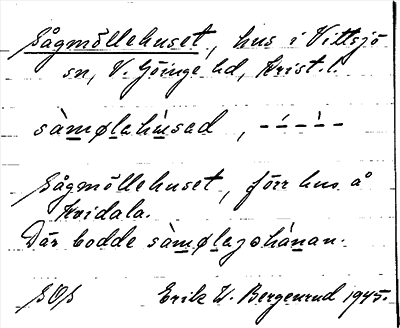 Sågmöllehuset, hus i Vittsjö
sn, V. Göinge hd, Krist. l.
sàmølahúsad, –´–`–
Sågmöllehuset, förr hus å
Hvidala.
Där bodde sàmølagohánan.
Erik W. Bergenrud 1945.